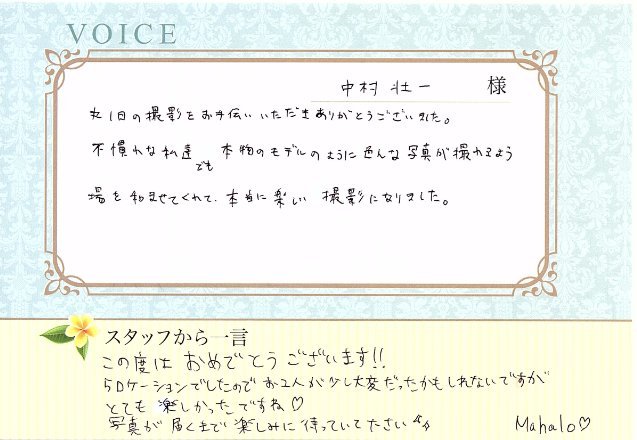 VOICE
中村 壮一 様
丸1日の撮影をお手伝いいただきありがとうございました。
不慣れな私達でも 本物のモデルのように色んな写真が撮れるよう
場を和ませてくれて、本当に楽しい 撮影になりました。
スタッフから一言
この度は おめでとうございます!!
5ロケーションでしたので お2人が少し大変だったかもしれないですが
とても 楽しかったですね♡
写真が 届くまで 楽しみに 待っていて下さい
Mahalo♡